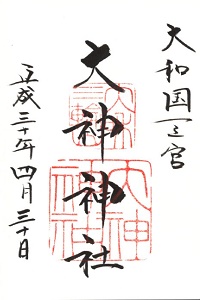 大和国一之宮
大神神社
平成三十年四月三十日
大神神社